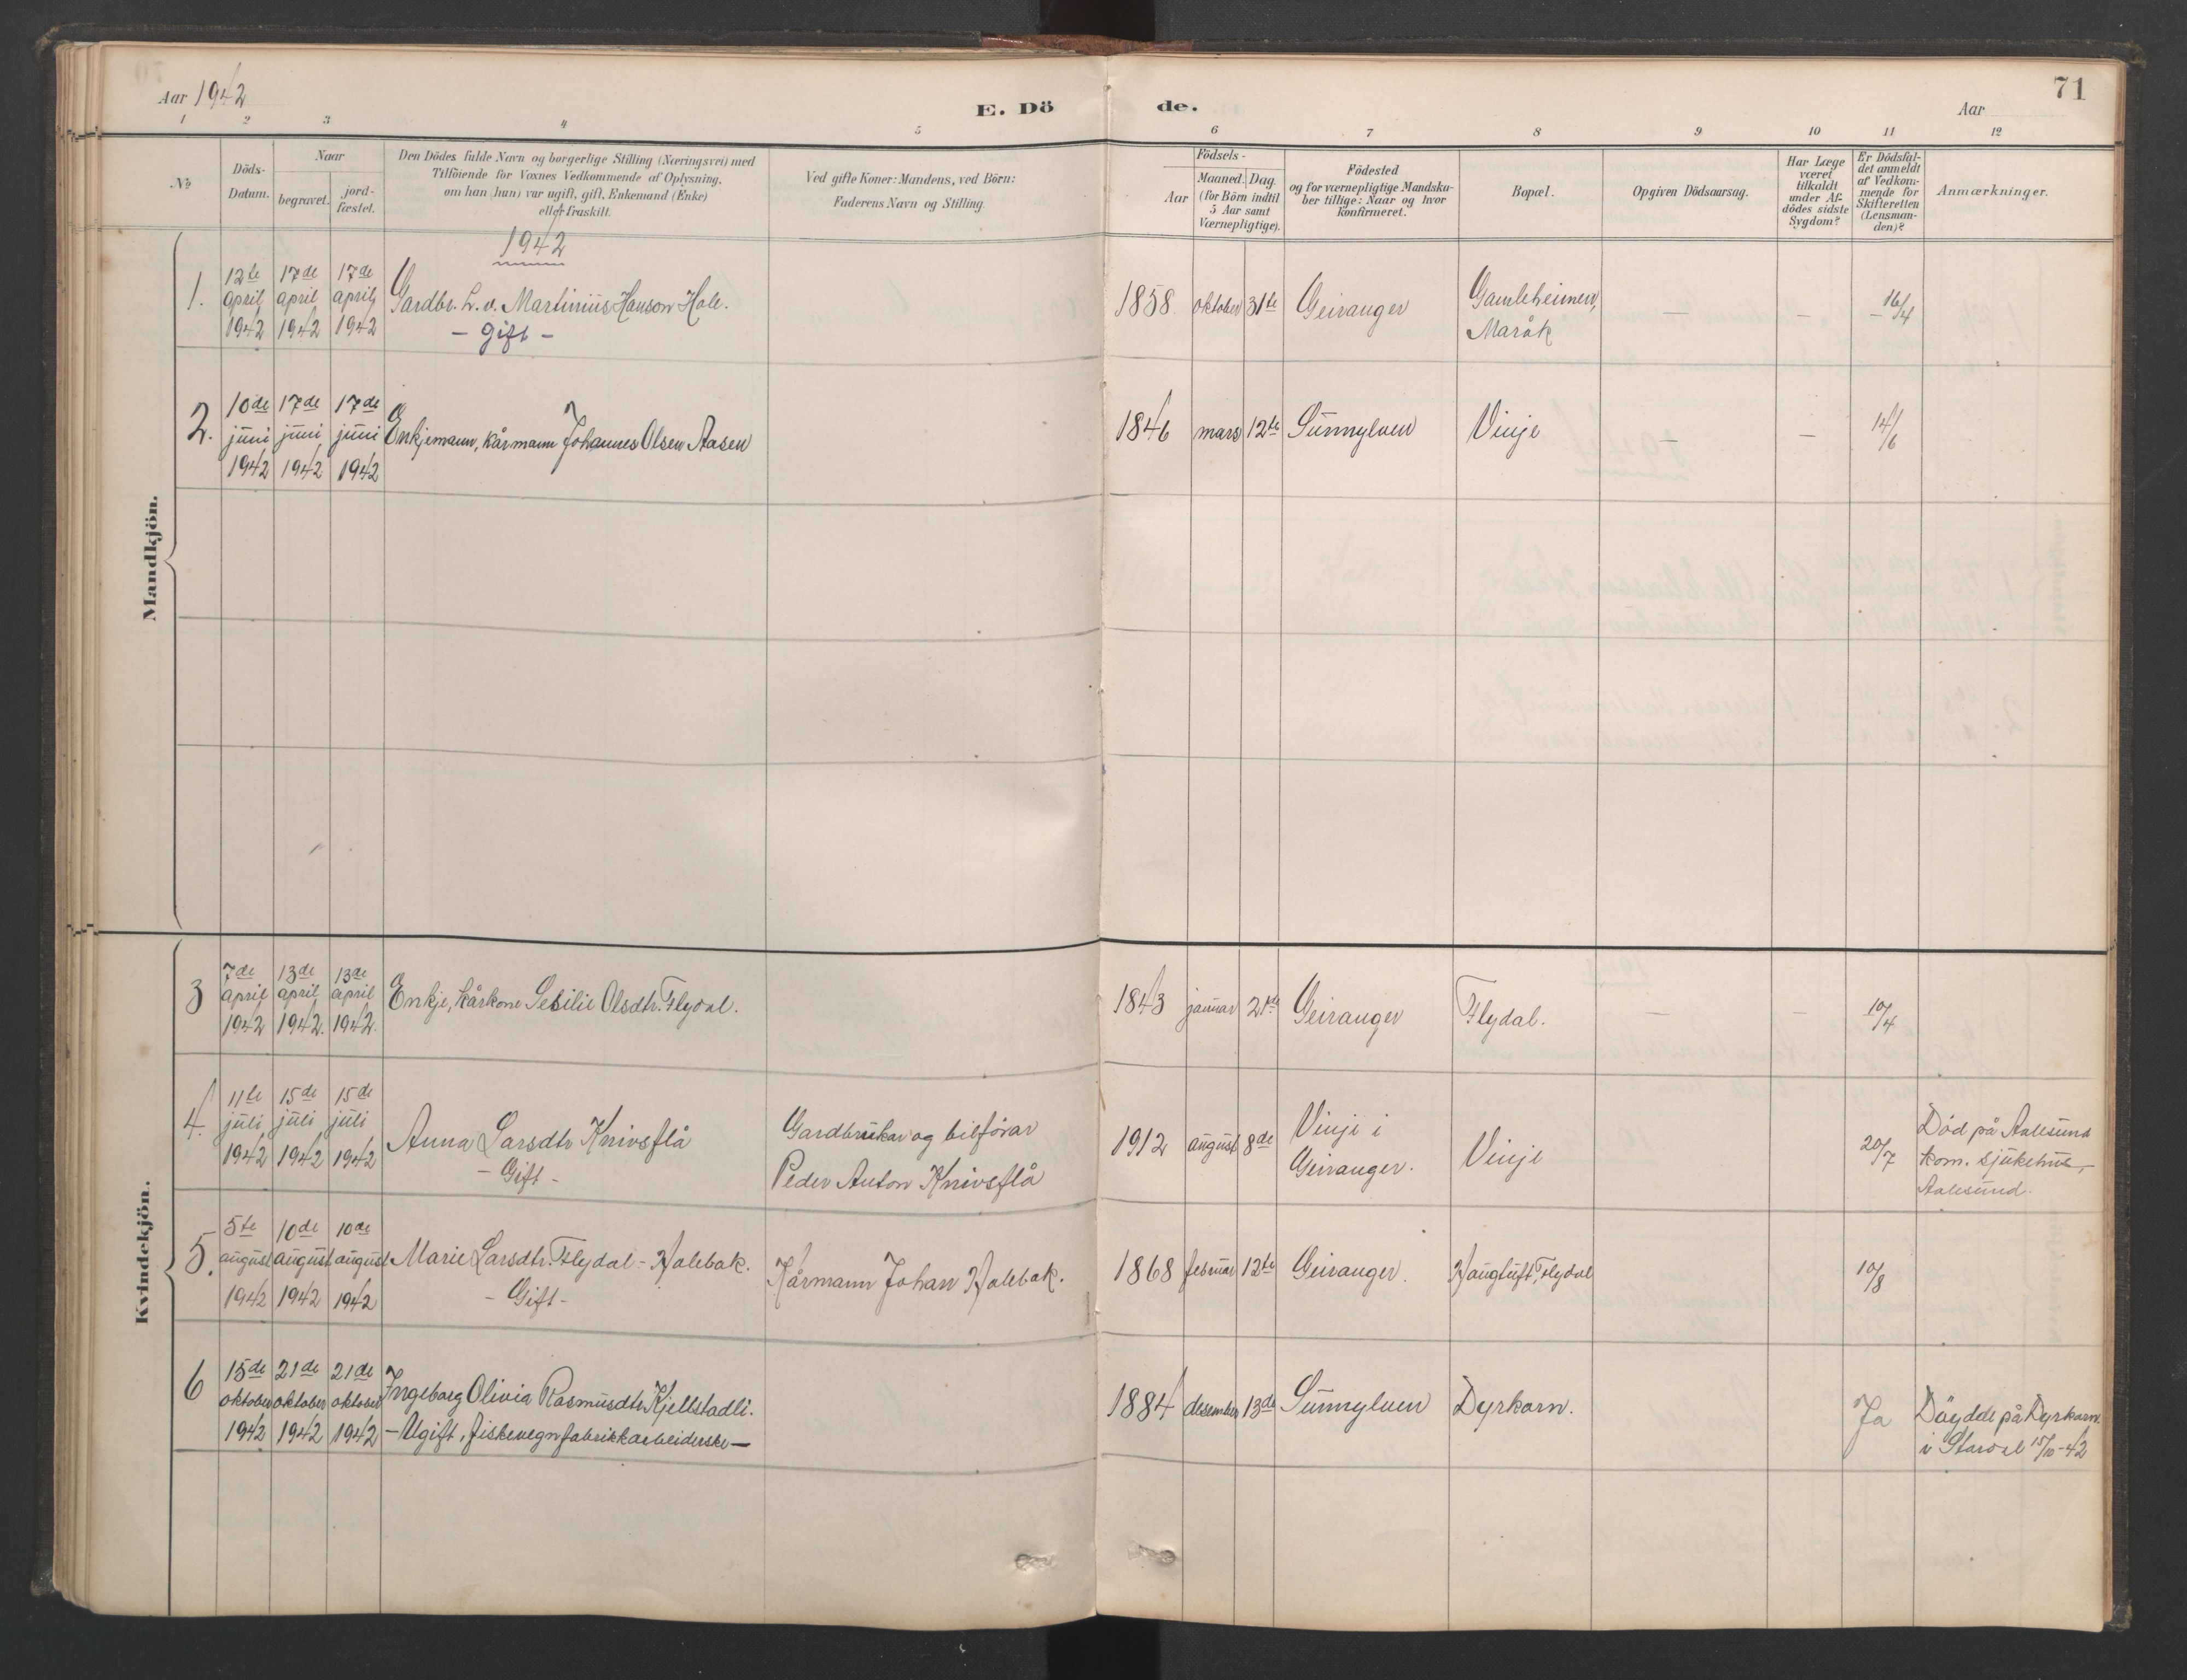 Aar 1942
E. Dö de.
Aar
71
1 2 3 4 5 6 7 8 9 10 11 12
No
Döds-
Datum.
Naar
begravet.
jord-
fæstet.
Den Dödes fulde Navn og borgerlige Stilling (Næringsvei) med
Tilföiende for Voxnes Vedkommende af Oplysning,
om han (hun) var ugift, gift, Enkemand (Enke)
eller fraskilt.
Ved gifte Koner: Mandens, ved Börn:
Faderens Navn og Stilling.
Födsels-
Aar
Maaned. Dag.
(for Börn indtil
5 Aar samt
Værnepligtige).
Födested
og for værnepligtige Mandska-
ber tillige: Naar og hvor
konfirmeret.
Bopæl.
Opgiven Dödsaarsag.
Har Læge
været
tilkaldt
under Af-
dödes sidste
Sygdom?
Er Dödsfal-
det anmeldt
af Vedkom-
mende for
Skifteretten
(Lensman-
den)?
Anmærkninger.
Mandkjön.
1942
1. 12te april 1942 17de april 1942 17de april 1942
Gardbr. L. v. Martinius Hanson Hole.
- Gift -
1858 oktober 31te Geiranger Gamleheimen,
Maråk
— — 16/4
2. 10de juni 1942 17de juni 1942 17de juni 1942
Enkjemann, kårmann Johannes Olsen Aasen
1846 mars 12te Sunnylven Vinje — — 14/6
Kvindekjön.
3 7de april 1942 13de april 1942. 13de april 1942.
Enkje, kårkone Sesilie Olsdtr. Flydal.
1843 januar 21de Geiranger Flydal. — — 10/4
4. 11te juli 1942 15de juli 1942 15de juli 1942
Anna Larsdtr Knivsflå
- Gift -
Gardbrukar og bilförar
Peder Anton Knivsflå
1912 august 8de Vinje i
Geiranger.
Vinje
20/7
Död på Aalesund
kom. sjukehus,
Aalesund.
5. 5te august 1942 10de august 1942 10de august 1942
Marie Larsdtr. Flydal - Holebak.
- Gift -
Kårmann Johan Holebak.
1868 februar 12te Geiranger. Haugtuft, Flydal
10/8
6 15de oktober 1942 21de oktober 1942 21de oktober 1942
Ingeborg Olivia Rasmusdtr. Kjellstadli.
- Ugift, fiskevegnfabrikkarbeiderske -
1884 desember 13de Sunnylven Dyrkorn.
Ja
Döydde på Dyrkorn
i Stordal 15/10-42